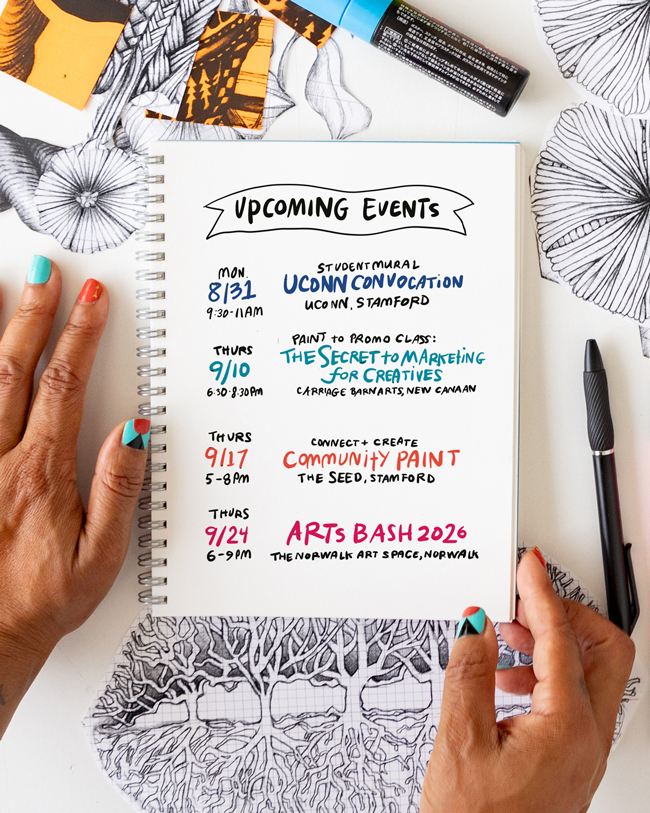 UPCOMING EVENTS
MON.
8/31
9:30-11AM
STUDENT MURAL
UCONN CONVOCATION
UCONN, STAMFORD
THURS
9/10
6:30-8:30PM
PAINT to PROMO CLASS:
THE SECRET to MARKETING
for CREATIVES
CARRIAGE BARN ARTS, NEW CANAAN
THURS
9/17
5-8PM
CONNECT + CREATE
COMMUNITY PAINT
THE SEED, STAMFORD
THURS
9/24
6-9PM
ARTs BASH 2026
THE NORWALK ART SPACE, NORWALK